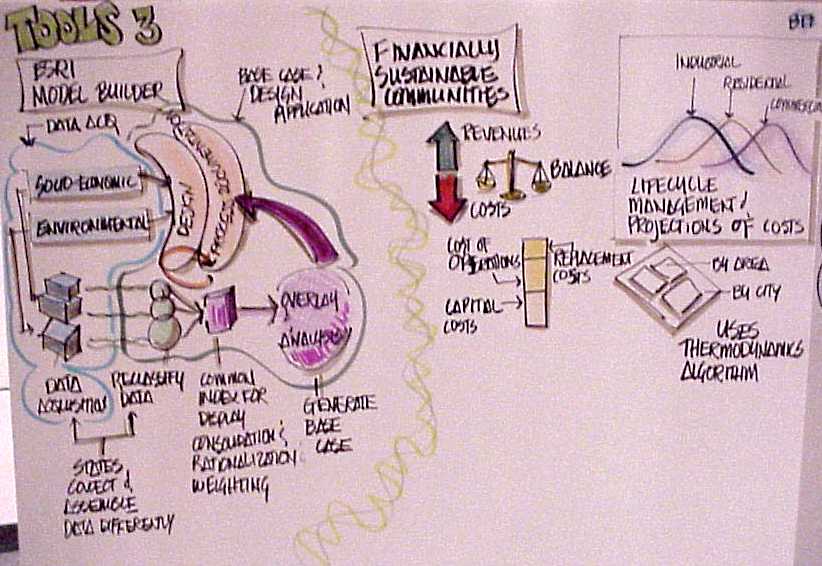 TOOLS 3
ESRI
MODEL BUILDER
BASE CASE &
DESIGN
APPLICATION
DATA ACQ
SOCIO-ECONOMIC
ENVIRONMENTAL
DESIGN
PROCESS
OVERLAY
ANALYSIS
DATA
ACQUISITION
RECLASSIFY
DATA
COMMON
INDEX FOR
DISPLAY
CONSOLIDATION &
RATIONALIZATION
WEIGHTING
GENERATE
BASE
CASE
STATES
COLLECT &
ASSEMBLE
DATA DIFFERENTLY
FINANCIALLY
SUSTAINABLE
COMMUNITIES
REVENUES
BALANCE
COSTS
COST OF
OPERATIONS
REPLACEMENT
COSTS
CAPITAL
COSTS
INDUSTRIAL
RESIDENTIAL
COMMERCIAL
LIFECYCLE
MANAGEMENT &
PROJECTIONS OF COSTS
BY AREA
BY CITY
USES
THERMODYNAMICS
ALGORITHM